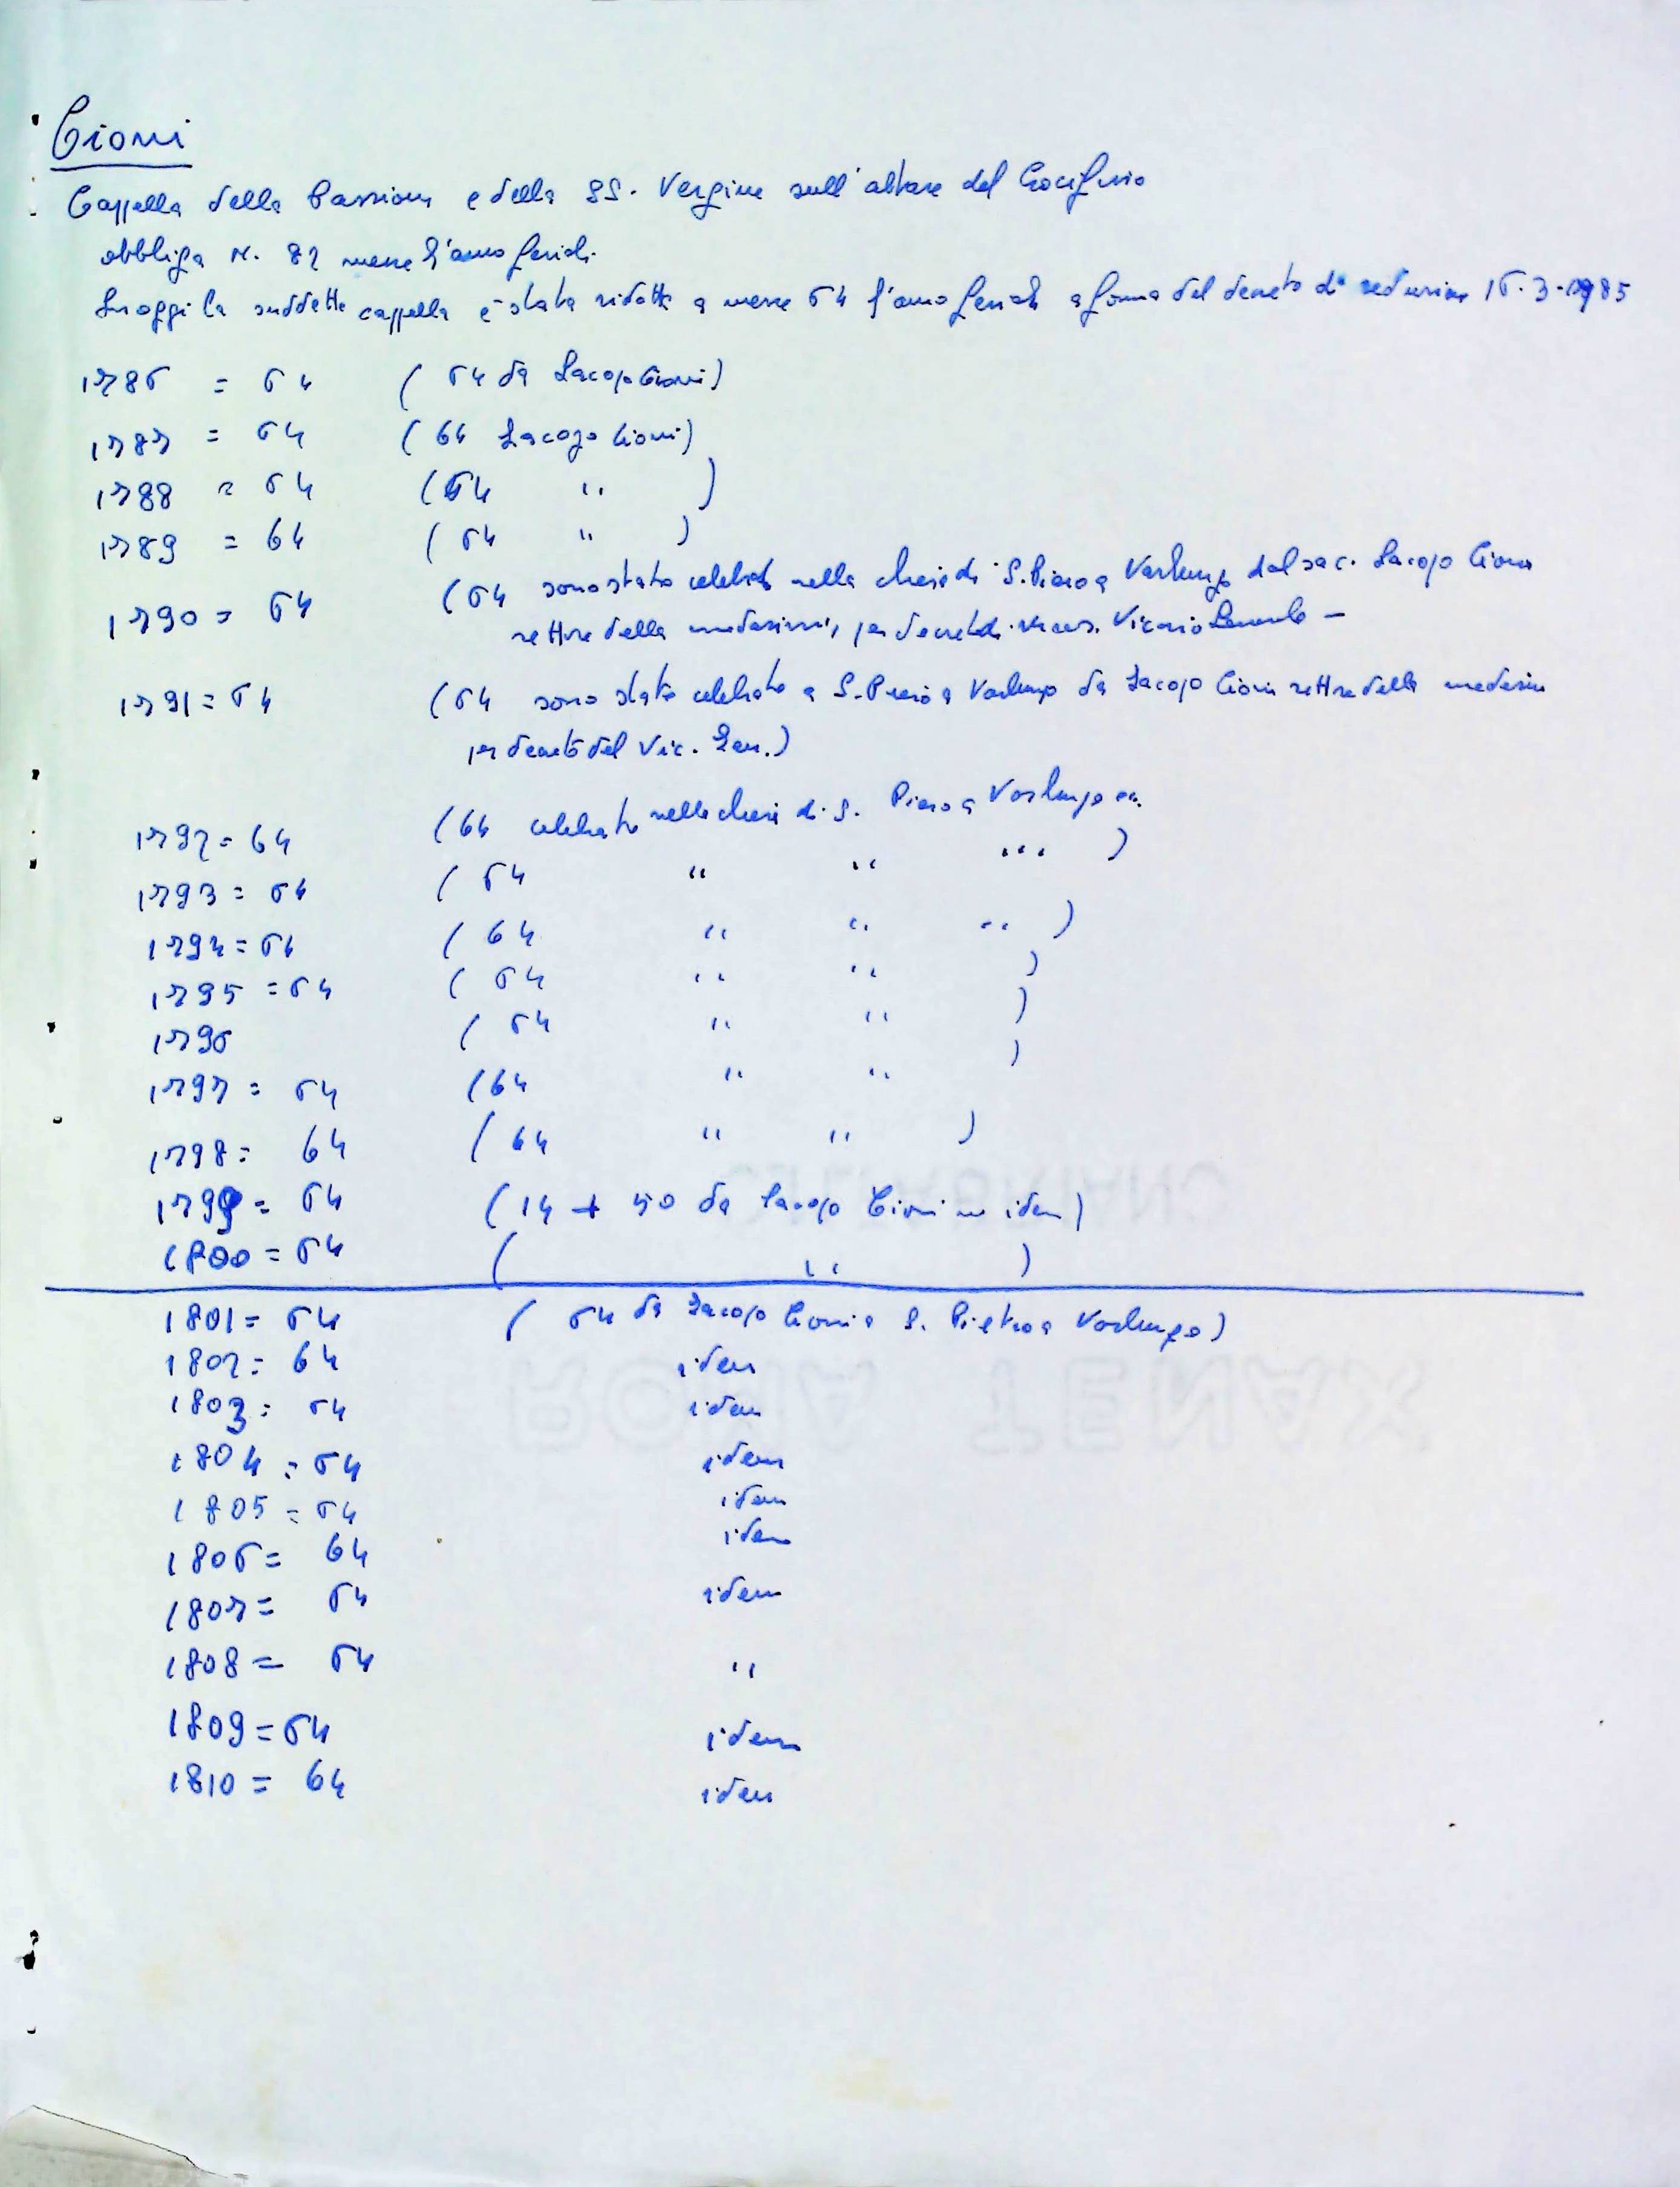 Cioni
Cappella della Passione e della SS. Vergine sull'altare del Crocifisso
obbliga N. 82 messe l'anno feriali.
In oggi la suddetta cappella è stata ridotta a messe 64 l'anno feriali a forma del decreto di reduzione 16.3.1785
1786 = 64 (64 da Iacopo Cioni)
1787 = 64 (64 Iacopo Cioni)
1788 = 64 (64 " )
1789 = 64 (64 " )
1790 = 64 (64 sono state celebrate nella chiesa di S. Piero a Varlungo dal sac. Iacopo Cioni
rettore della medesima, per decreto di Vicario Generale —
1791 = 64 (64 sono state celebrate a S. Piero a Varlungo da Iacopo Cioni rettore della medesima
per decreto del Vic. Gen.)
1792 = 64 (64 celebrate nella chiesa di S. Piero a Varlungo
1793 = 64 (64 " " " )
1794 = 64 (64 " " " )
1795 = 64 (64 " " )
1796 (64 " " )
1797 = 64 (64 " " )
1798 = 64 (64 " " )
1799 = 64 (14 + 50 da Iacopo Cioni in idem)
1800 = 64 ( " )
1801 = 64 (64 da Iacopo Cioni a S. Pietro a Varlungo)
1802 = 64 idem
1803 = 64 idem
1804 = 64 idem
1805 = 64 idem
1806 = 64 idem
1807 = 64 idem
1808 = 64 "
1809 = 64 idem
1810 = 64 idem
CELLABRIANO
ROMA TENAX